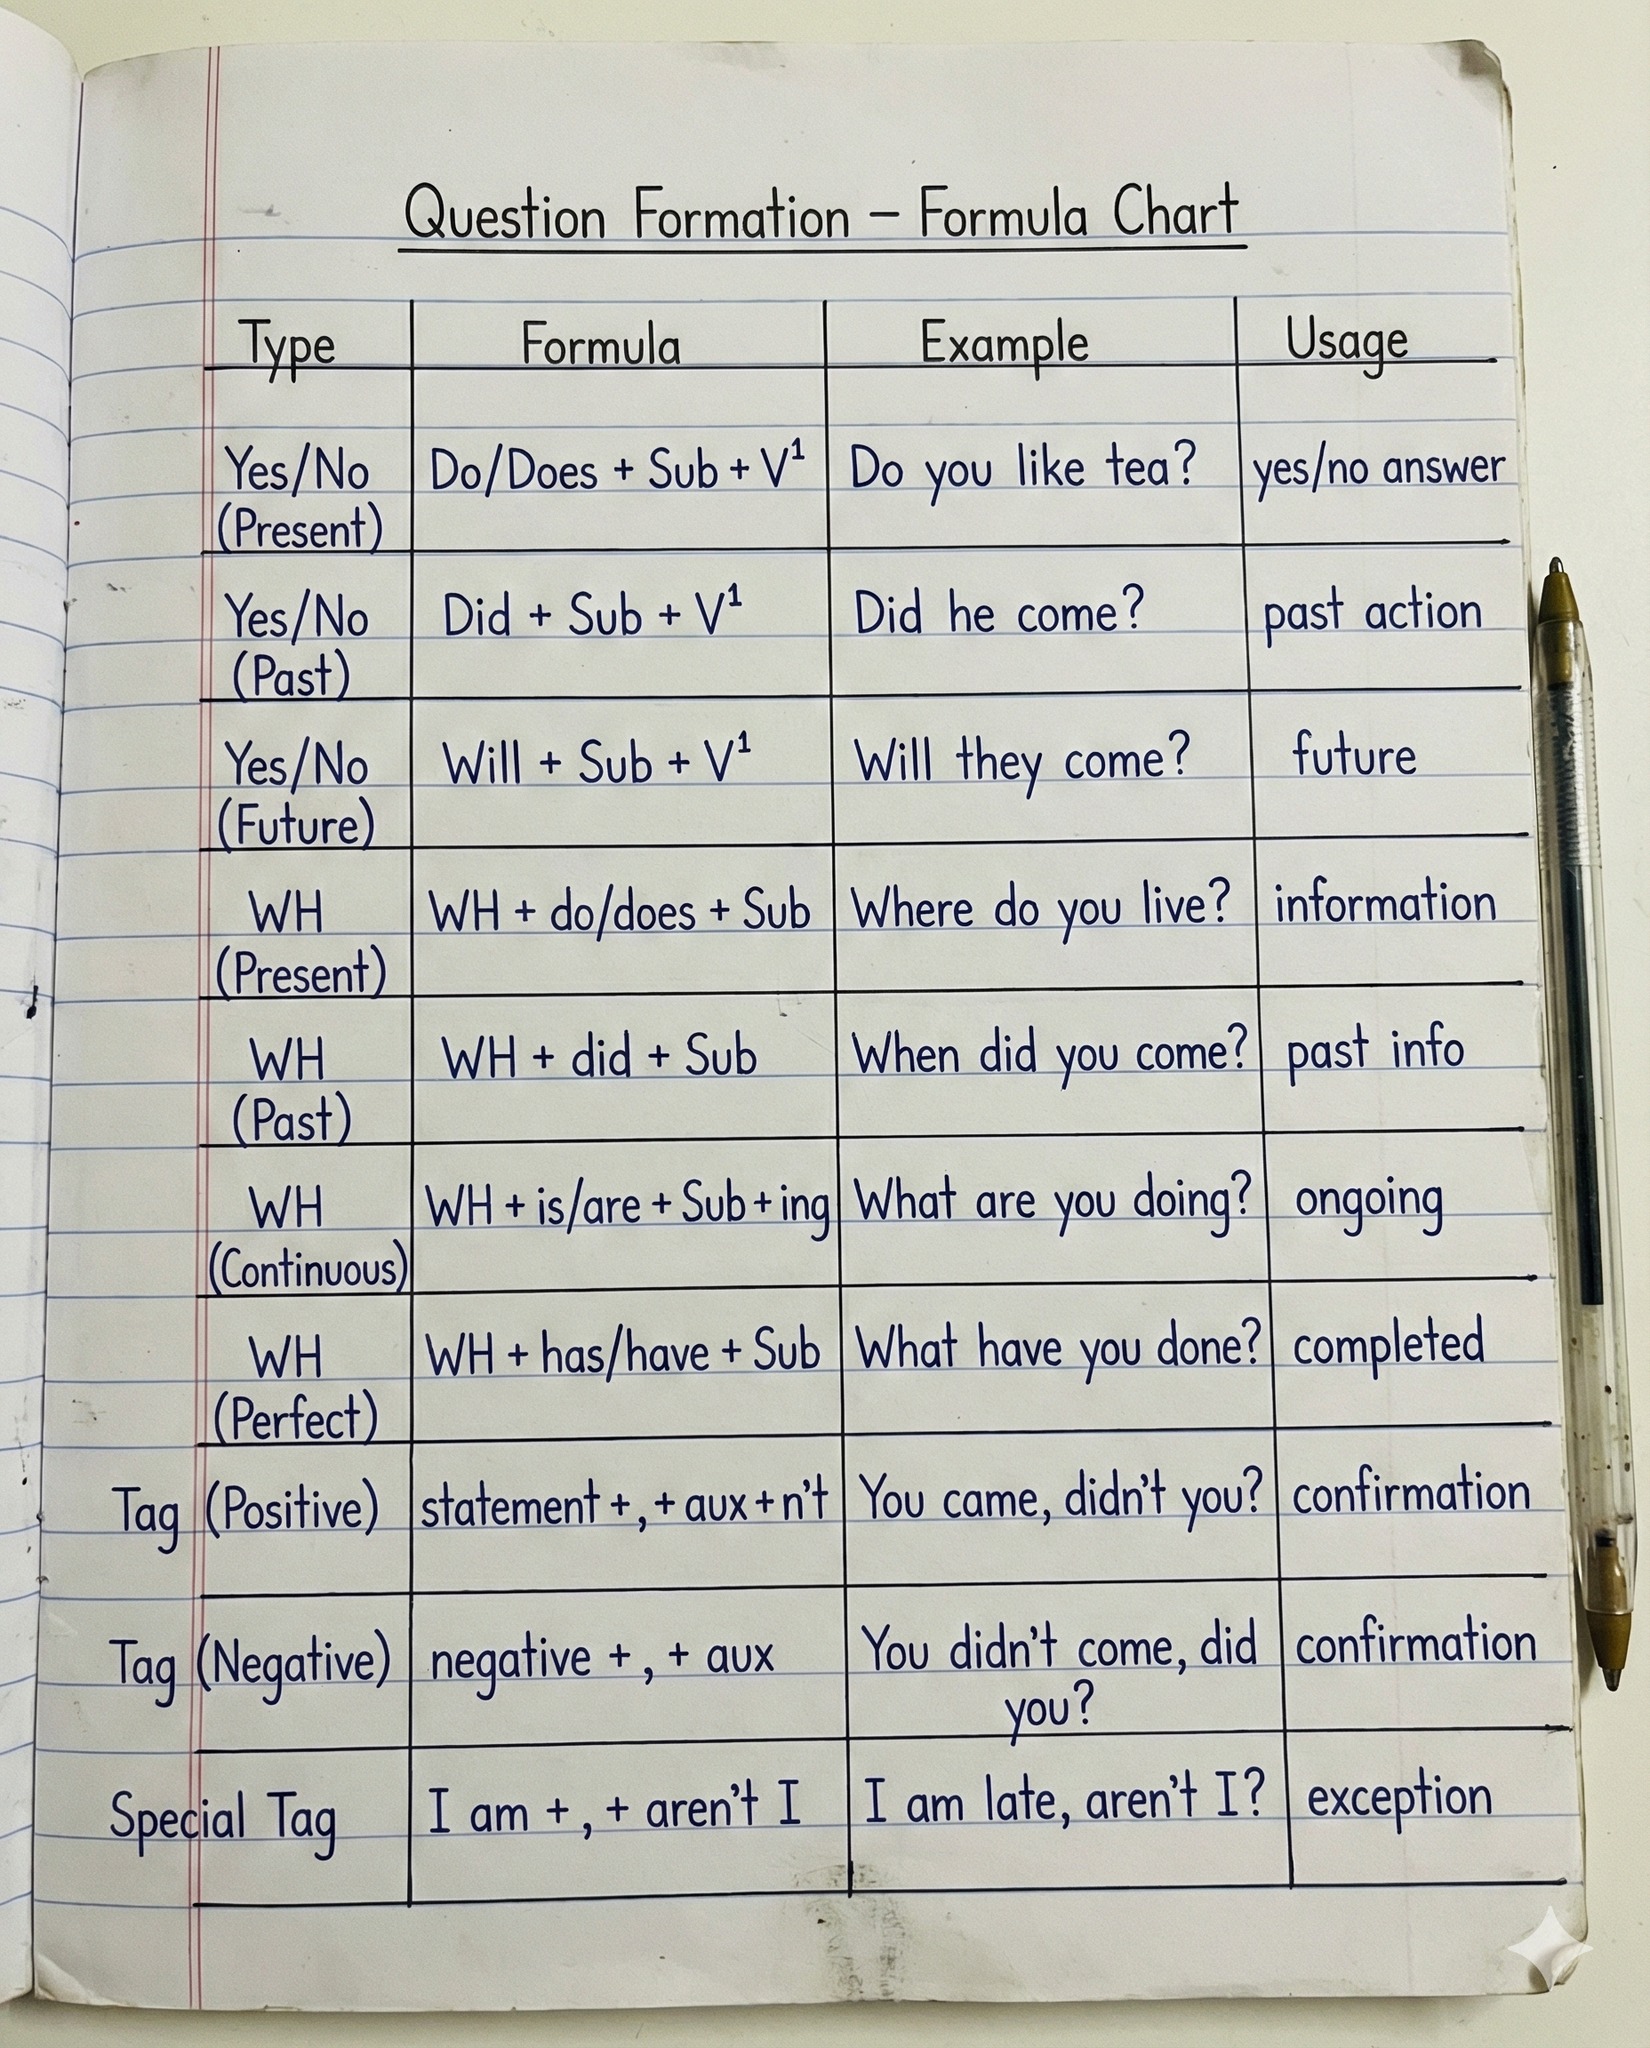 Question Formation – Formula Chart
Type Formula Example Usage
Yes/No Do/Does + Sub + V¹ Do you like tea? yes/no answer
(Present)
Yes/No Did + Sub + V¹ Did he come? past action
(Past)
Yes/No Will + Sub + V¹ Will they come? future
(Future)
WH WH + do/does + Sub Where do you live? information
(Present)
WH WH + did + Sub When did you come? past info
(Past)
WH WH + is/are + Sub + ing What are you doing? ongoing
(Continuous)
WH WH + has/have + Sub What have you done? completed
(Perfect)
Tag (Positive) statement + , + aux + n't You came, didn't you? confirmation
Tag (Negative) negative + , + aux You didn't come, did confirmation
you?
Special Tag I am + , + aren't I I am late, aren't I? exception